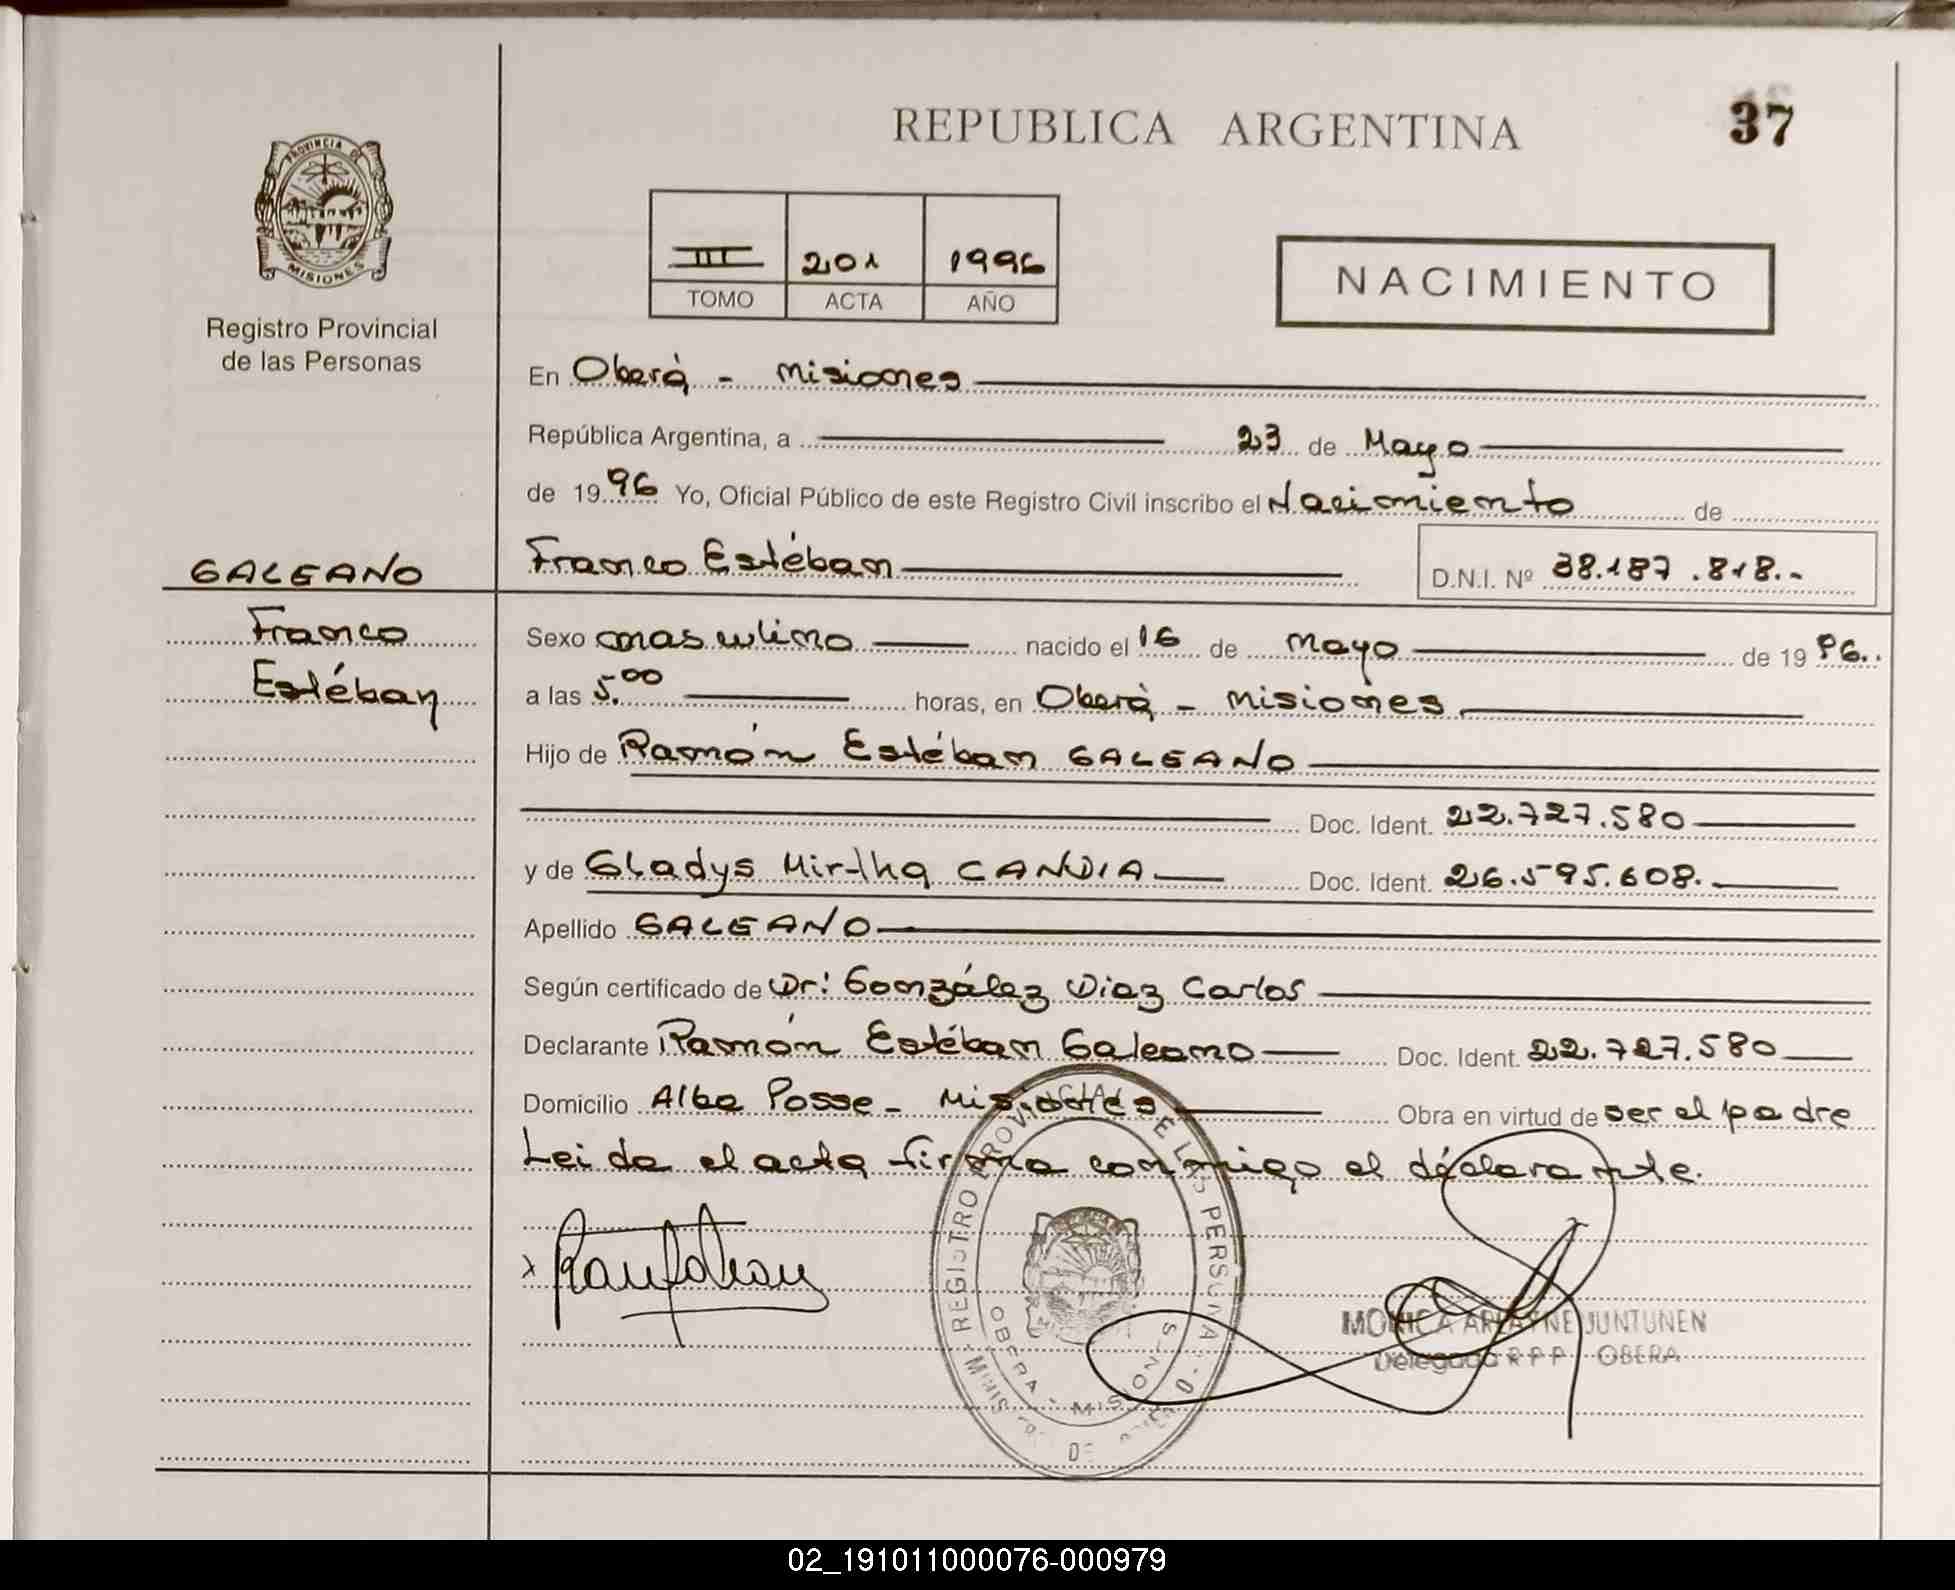 37
REPUBLICA ARGENTINA
PROVINCIA DE
MISIONES
Registro Provincial
de las Personas
III 201 1996
TOMO ACTA AÑO
NACIMIENTO
En Oberá - Misiones
República Argentina, a 23 de Mayo
de 1996 Yo, Oficial Público de este Registro Civil inscribo el Nacimiento de
GALEANO Franco Estéban D.N.I. Nº 38.187.818.-
Franco
Estéban
Sexo masculino nacido el 16 de Mayo de 1996.
a las 5.00 horas, en Oberá - Misiones
Hijo de Ramón Estéban GALEANO
Doc. Ident. 22.727.580
y de Gladys Mirtha CANDIA Doc. Ident. 26.595.608.
Apellido GALEANO
Según certificado de Dr: González Diaz Carlos
Declarante Ramón Estéban Galeano Doc. Ident. 22.727.580
Domicilio Alba Posse - Misiones Obra en virtud de ser el padre
Leida el acta firma conmigo el declarante.
REGISTRO PROVINCIAL DE LAS PERSONAS
OBERA - MISIONES
MONICA ARLAYNE JUNTUNEN
Delegada R P P OBERA
02_191011000076-000979